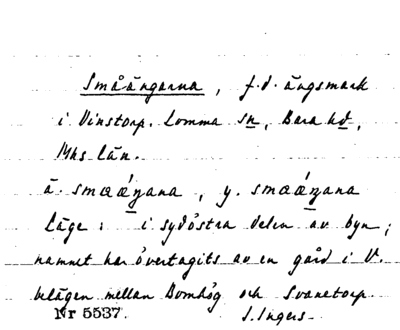 Småängarna, f.d. ängsmark
i Vinstorp. Lomma sn, Bara hd,
Mhs län.
ä. smɑɑ́ŋana, y. smɑɑ́ŋana
Läge: i sydöstra delen av byn;
namnet har övertagits av en gård i V.
belägen mellan Domhög och Svanetorp.
Nr 5537. S. Ingers.